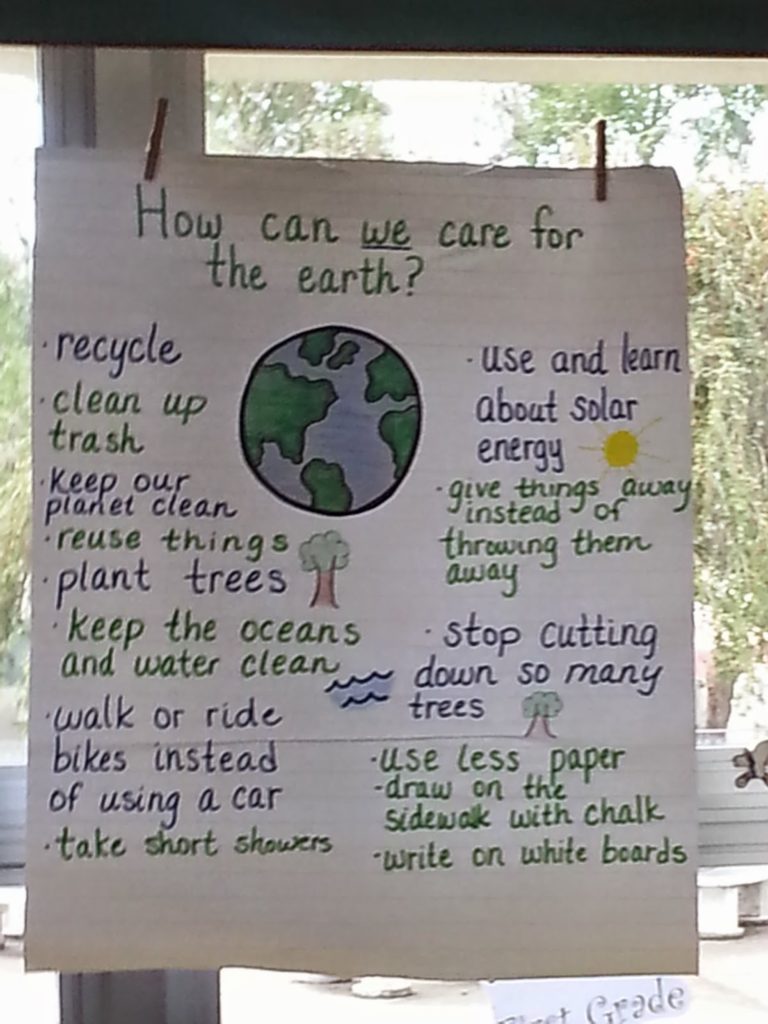 How can we care for
the earth?
· recycle
· clean up
trash
· keep our
planet clean
· reuse things
· plant trees
· keep the oceans
and water clean
· walk or ride
bikes instead
of using a car
· take short showers
· use and learn
about solar
energy
· give things away
instead of
throwing them
away
· stop cutting
down so many
trees
· use less paper
- draw on the
sidewalk with chalk
- write on white boards
First Grade